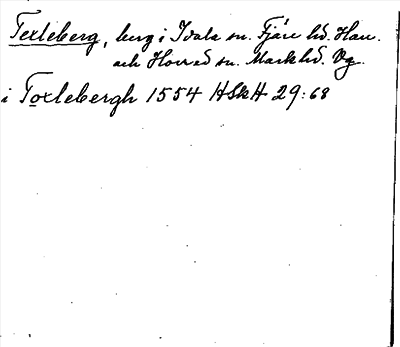 Texleberg, berg i Idala sn. Fjäre hd. Hall.
och Horred sn. Marks hd. Vg.
i Toxlebergh 1554 HSkH 29:68